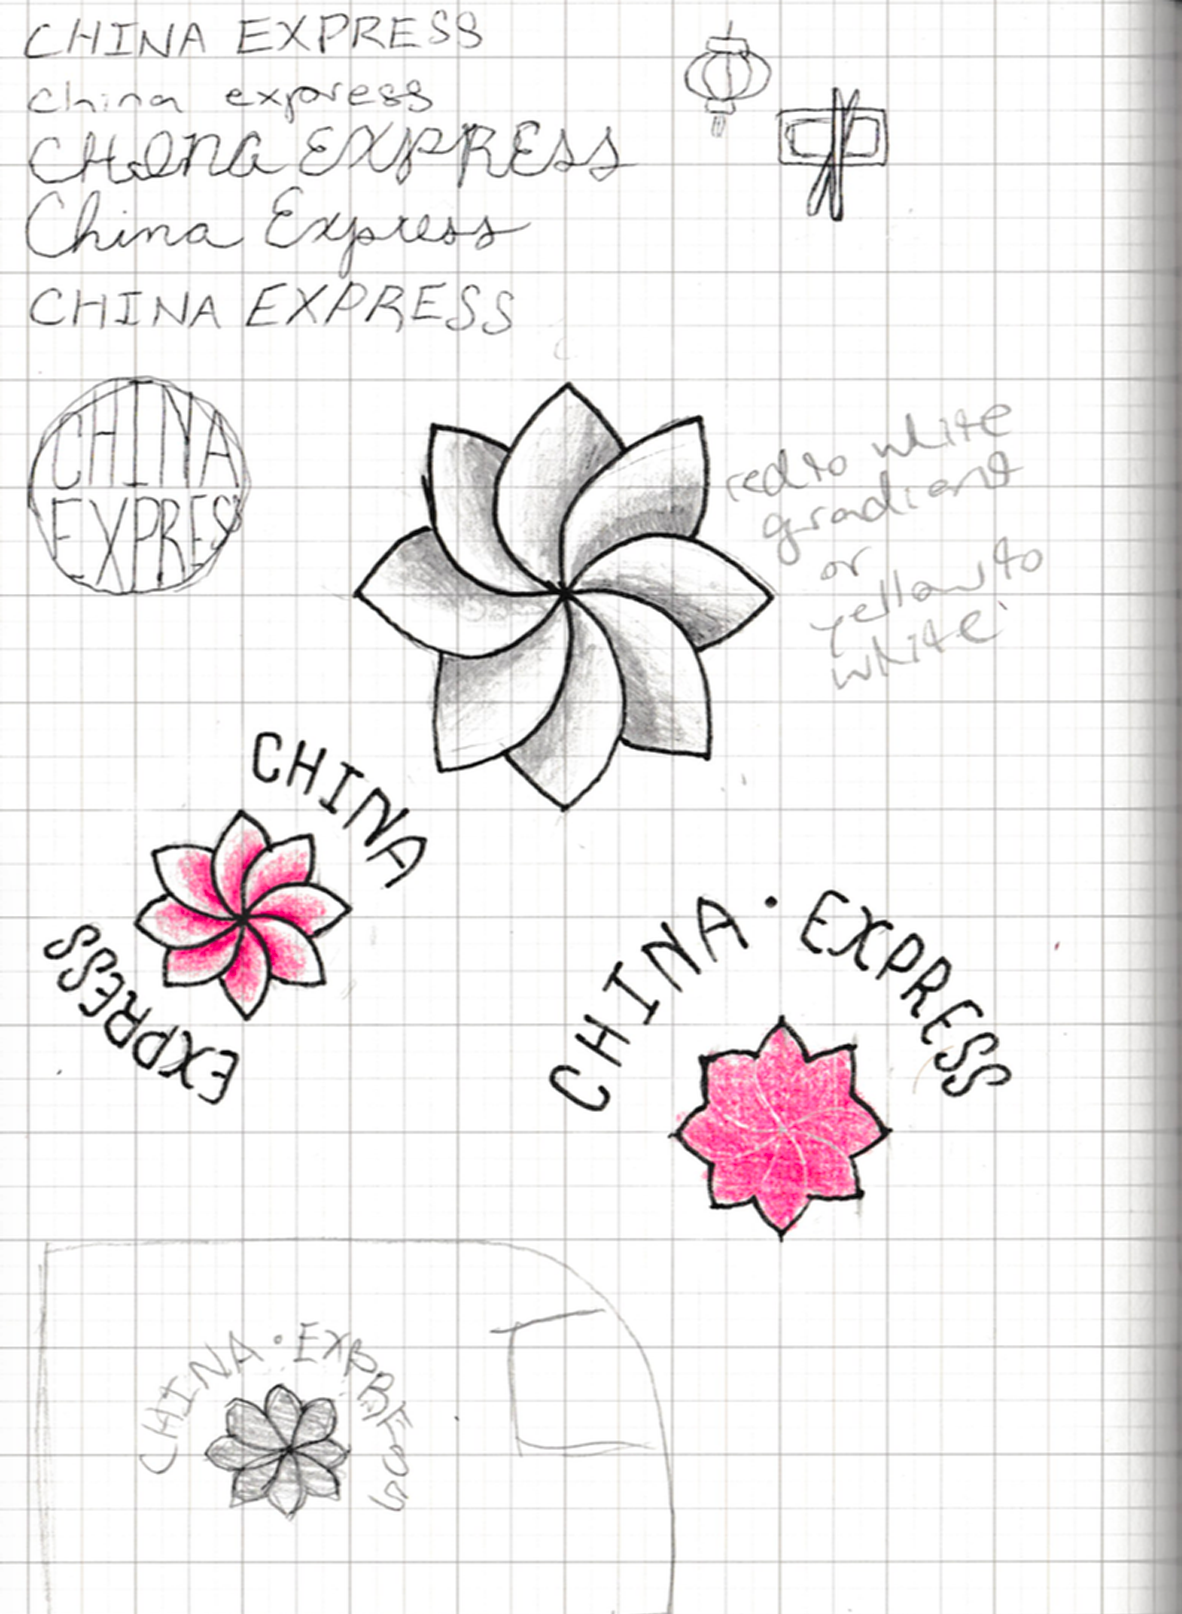 CHINA EXPRESS
china express
CHINA EXPRESS
China Express
CHINA EXPRESS
CHINA
EXPRESS
red to white
gradient
or
yellow to
white
CHINA
EXPRESS
CHINA · EXPRESS
CHINA · EXPRESS